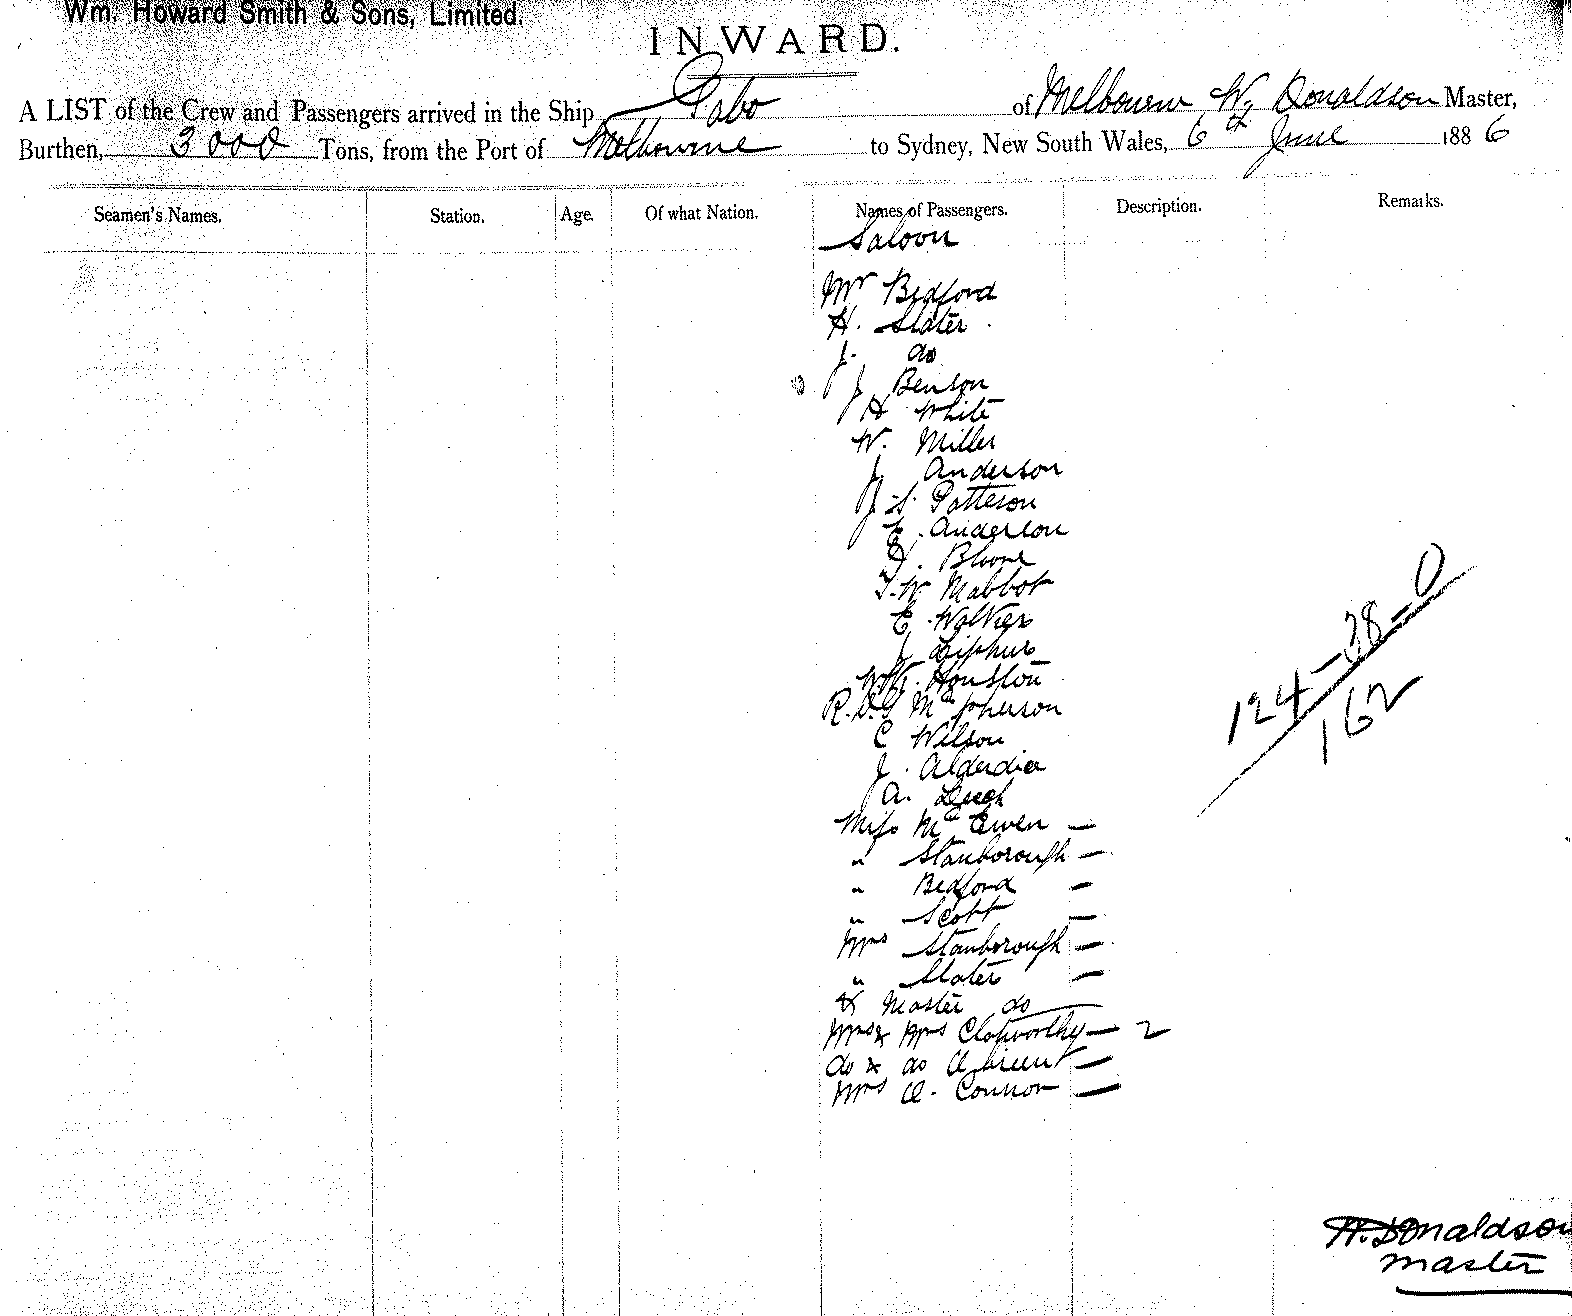 Wm. Howard Smith & Sons, Limited.
INWARD.
A LIST of the Crew and Passengers arrived in the Ship Gabo of Melbourne W. Donaldson Master,
Burthen, 3000 Tons, from the Port of Melbourne to Sydney, New South Wales, 6th June 1886
Seamen's Names. Station. Age. Of what Nation. Names of Passengers. Description. Remarks.
Saloon
Mr Bedford
H. Slater
J. do
J Benson
H White
W. Miller
J Anderson
J. S. Patteson
E. Anderson
H. Bloone
T. W Mabbot
E. Walker
J
Houston
R. McPherson
C Wilson
J. Alderdice
A. Leech
Miss McEwen —
" Stanborough —
" Bedford —
" Scott —
Mrs Stanborough —
" Slater —
& Master do —
Mrs & Mrs Clotworthy — 2
do & do —
Mrs O. Connor —
124-38-0
162
W. Donaldson
Master